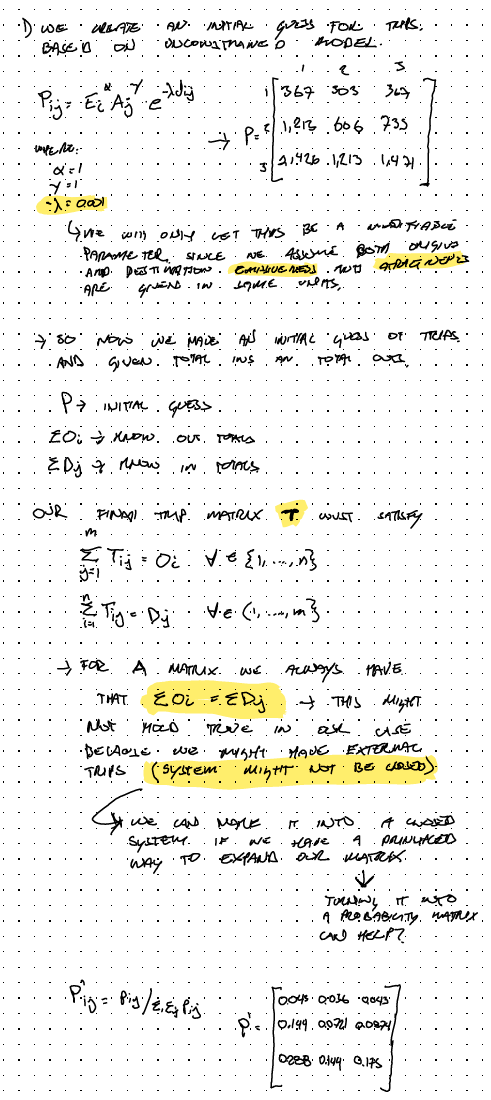 1) WE CREATE AN INITIAL GUESS FOR TRIPS.
BASED ON UNCONSTRAINED MODEL.
Pij = Ei^α Aj^γ e^-λdij
WHERE:
α = 1
γ = 1
-λ = 0.001
→ P =
1 2 3
1 367 303 367
2 1,213 606 735
3 2,426 1,213 1,471
↳ WE WILL ONLY LET THIS BE A MODIFIABLE
PARAMETER SINCE WE ASSUME BOTH ORIGINS
AND DESTINATION AND
ARE GIVEN IN SAME UNITS.
→ SO NOW WE HAVE AN INITIAL GUESS OF TRIPS
AND GIVEN TOTAL INS AN TOTAL OUTS.
P → INITIAL GUESS
ΣOi → KNOW OUT TOTALS
ΣDj → KNOW IN TOTALS
OUR FINAL TRIP MATRIX T MUST SATISFY
m
Σ Tij = Oi ∀ ∈ {1, ..., n}
j=1
n
Σ Tij = Dj ∀ ∈ (1, ..., m}
i=1
→ FOR A MATRIX WE ALWAYS HAVE
THAT ΣOi = ΣDj → THIS MIGHT
NOT HOLD TRUE IN OUR CASE
BECAUSE WE MIGHT HAVE EXTERNAL
TRIPS (SYSTEM MIGHT NOT BE CLOSED)
↳ WE CAN MAKE IT INTO A CLOSED
SYSTEM IF WE HAVE A PRINCIPLED
WAY TO EXPAND OUR MATRIX.
↓
TURNING IT INTO
A PROBABILITY MATRIX
CAN HELP?
P'ij = Pij / ΣiΣj Pij
P' =
0.043 0.036 0.043
0.144 0.0721 0.0874
0.288 0.144 0.175